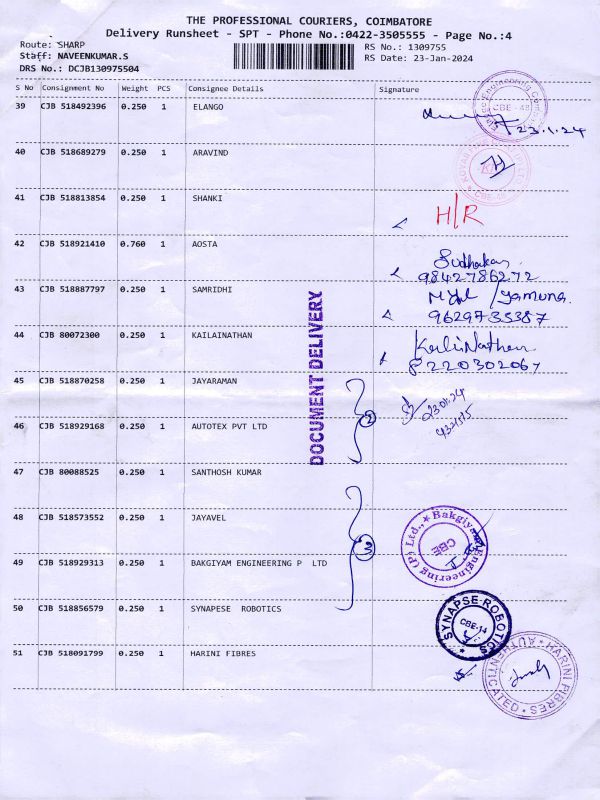 THE PROFESSIONAL COURIERS, COIMBATORE
Delivery Runsheet - SPT - Phone No.:0422-3505555 - Page No.:4
Route: SHARP
Staff: NAVEENKUMAR.S
DRS No.: DCJB130975504
RS No.: 1309755
RS Date: 23-Jan-2024
S No Consignment No Weight PCS Consignee Details Signature
39 CJB 518492396 0.250 1 ELANGO
23.1.24
CBE-48
40 CJB 518689279 0.250 1 ARAVIND
CBE-48
41 CJB 518813854 0.250 1 SHANKI
H/R
42 CJB 518921410 0.760 1 AOSTA
Sudhakar
9842786272
43 CJB 518887797 0.250 1 SAMRIDHI
/Yamuna.
9629735387
44 CJB 80072300 0.250 1 KAILAINATHAN
KailiNathan
8220302067
DOCUMENT DELIVERY
45 CJB 518870258 0.250 1 JAYARAMAN
23/01/24
46 CJB 518929168 0.250 1 AUTOTEX PVT LTD
2
47 CJB 80088525 0.250 1 SANTHOSH KUMAR
48 CJB 518573552 0.250 1 JAYAVEL
3
49 CJB 518929313 0.250 1 BAKGIYAM ENGINEERING P LTD
Bakgiyam Engineering (P) Ltd.,
CBE
50 CJB 518856579 0.250 1 SYNAPESE ROBOTICS
SYNAPSE ROBOTICS
CBE-14
51 CJB 518091799 0.250 1 HARINI FIBRES
HARINI FIBRES
AUTHENTICATED